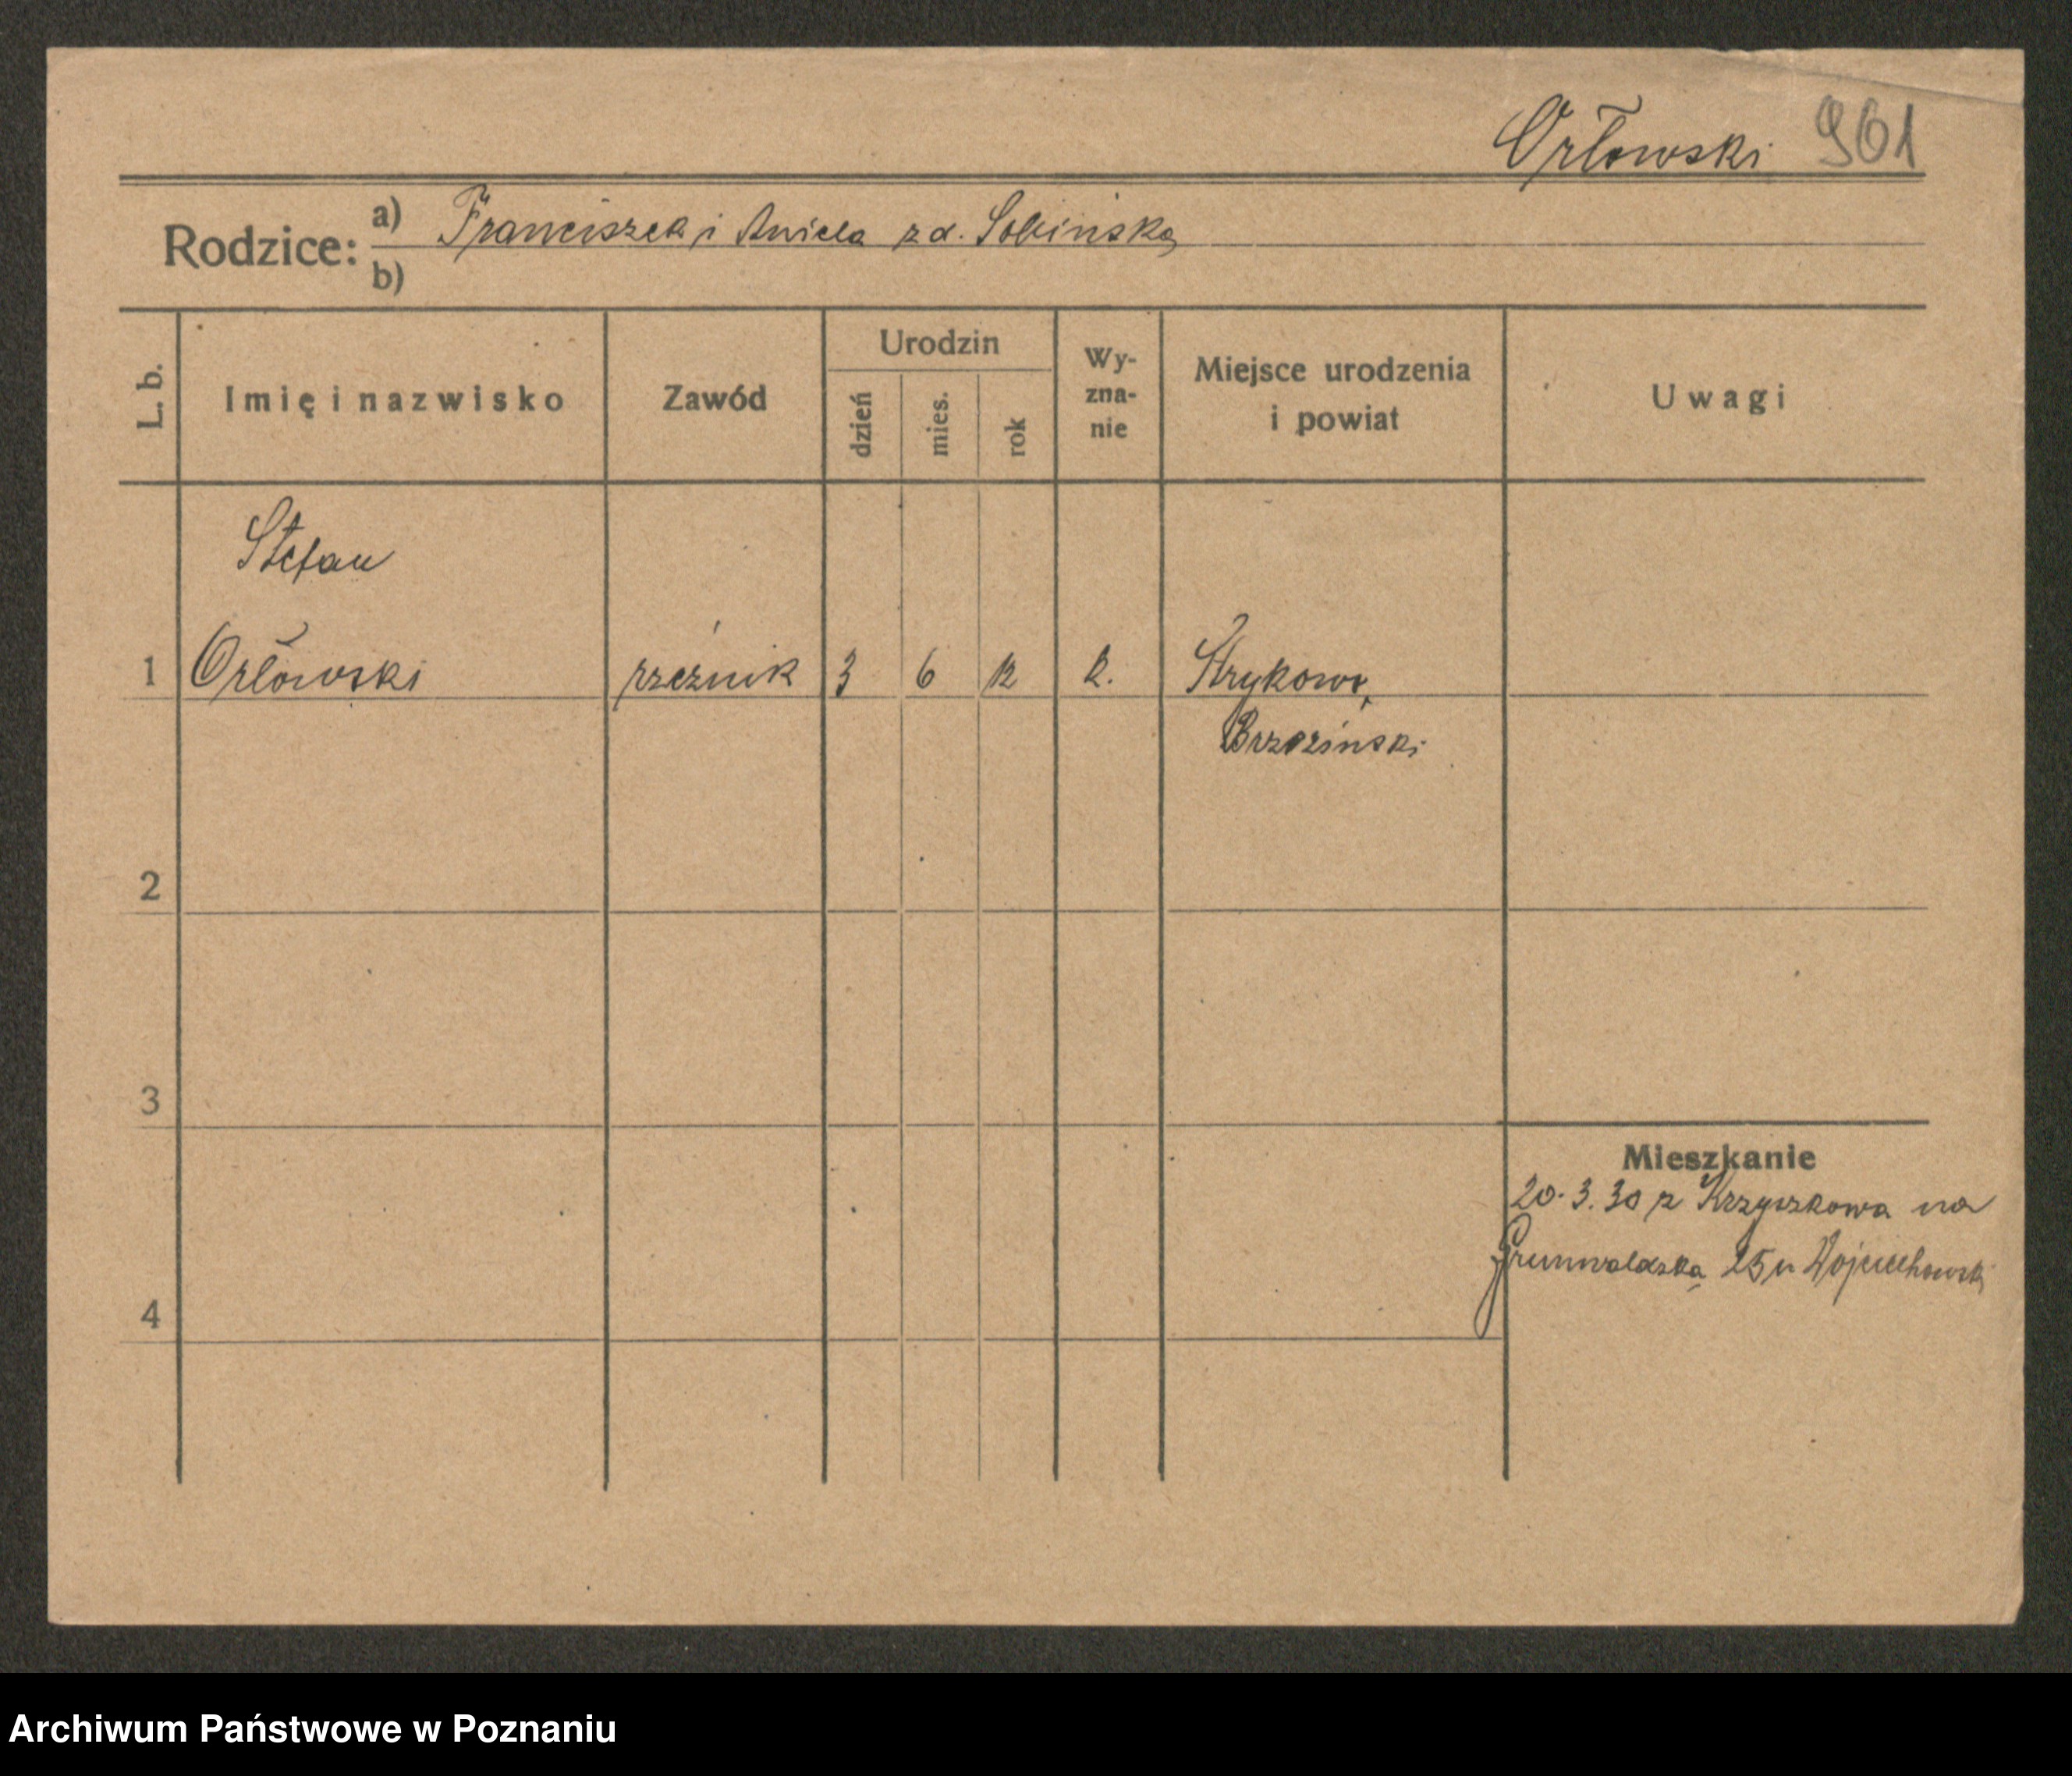 Orłowski 961
Rodzice: a) Franciszek i Aniela z d. Sobińska
b)
L. b. Imię i nazwisko Zawód Urodzin dzień mies. rok Wy-zna-nie Miejsce urodzenia i powiat Uwagi
Stefan
1 Orłowski rzeźnik 3 6 12 k. Strykowo,
Brzeziński
2
3
Mieszkanie
20.3.30 z Krzyszkowa na
Grunwaldzką 25 u Wojciechowski
4
Archiwum Państwowe w Poznaniu